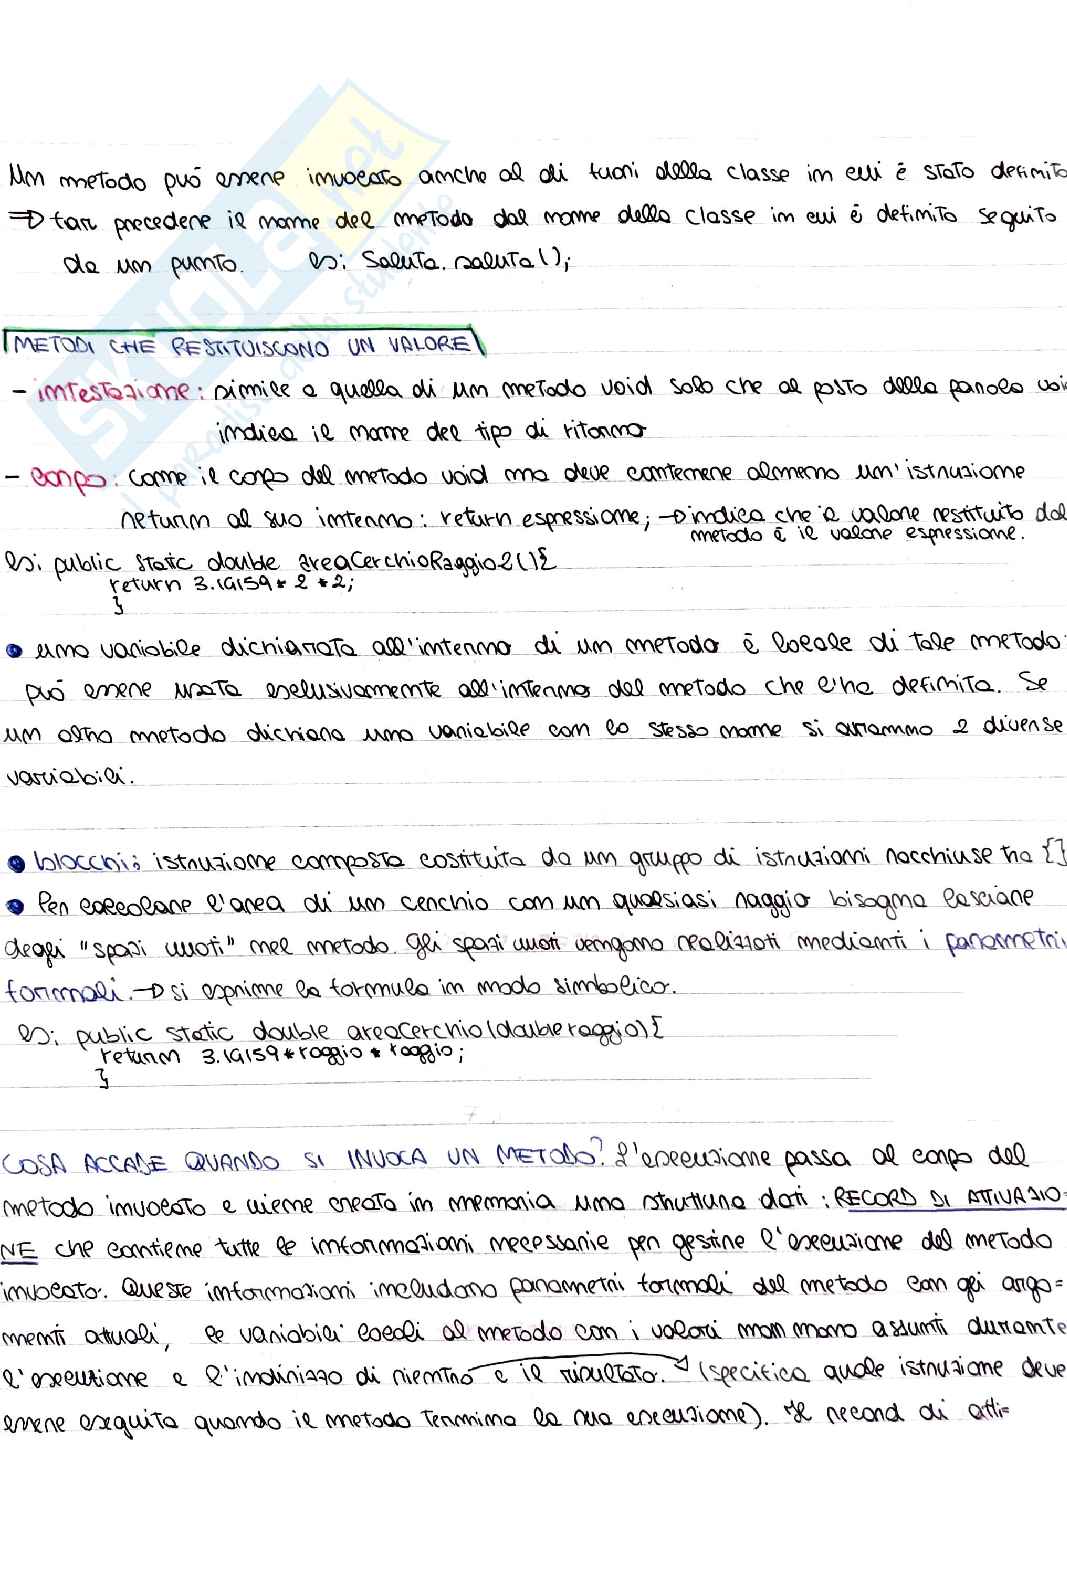 Un metodo può essere invocato anche al di fuori della classe in cui è stato definito
=> far precedere il nome del metodo dal nome della classe in cui è definito seguito
da un punto. es: Saluta.saluta();
METODI CHE RESTITUISCONO UN VALORE
- intestazione: simile a quella di un metodo void solo che al posto della parola voi
indica il nome del tipo di ritorno
- corpo: come il corpo del metodo void ma deve contenere almeno un'istruzione
return al suo interno: return espressione; → indica che il valore restituito dal
metodo è il valore espressione.
es: public static double areaCerchioRaggio2(){
return 3.14159 * 2 * 2;
}
• una variabile dichiarata all'interno di un metodo è locale di tale metodo:
può essere usata esclusivamente all'interno del metodo che l'ha definita. Se
un altro metodo dichiara una variabile con lo stesso nome si avranno 2 diverse
variabili.
• blocchi: istruzione composta costituita da un gruppo di istruzioni racchiuse tra {}
• Per calcolare l'area di un cerchio con un qualsiasi raggio bisogna lasciare
degli "spazi vuoti" nel metodo. Gli spazi vuoti vengono realizzati medianti i parametri
formali. → si esprime la formula in modo simbolico.
es: public static double areaCerchio(double raggio){
return 3.14159 * raggio * raggio;
}
COSA ACCADE QUANDO SI INVOCA UN METODO? L'esecuzione passa al corpo del
metodo invocato e viene creata in memoria una struttura dati: RECORD DI ATTIVAZIO=
NE che contiene tutte le informazioni necessarie per gestire l'esecuzione del metodo
invocato. Queste informazioni includono parametri formali del metodo con gli argo=
menti attuali, le variabili locali al metodo con i valori man mano assunti durante
l'esecuzione e l'indirizzo di rientro e il risultato. (specifica quale istruzione deve
essere eseguita quando il metodo termina la sua esecuzione). Il record di atti=
SKUOLA.net
il paradiso dello studente